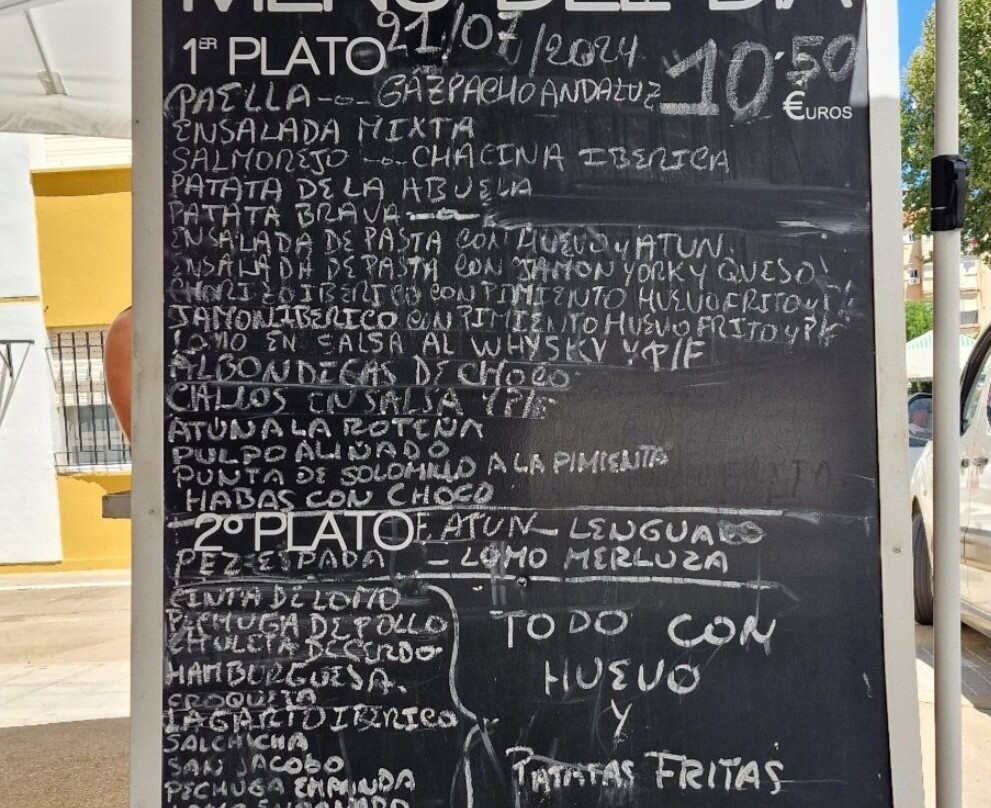 MENÚ DEL DIA
21/07/2024
1ER PLATO
10'50
€UROS
PAELLA --- GAZPACHO ANDALUZ
ENSALADA MIXTA
SALMOREJO --- CHACINA IBERICA
PATATA DE LA ABUELA
PATATA BRAVA
ENSALADA DE PASTA CON HUEVO y ATUN
ENSALADA DE PASTA CON JAMON YORK Y QUESO
CHORIZO IBERICO CON PIMIENTO HUEVO FRITO y
JAMON IBERICO CON PIMIENTO HUEVO FRITO y P/F
LOMO EN SALSA AL WHYSKY Y P/F
ALBONDEGAS DE CHOCO
CALLOS EN SALSA Y P/F
ATUN A LA ROTEÑA
PULPO ALIÑADO
PUNTA DE SOLOMILLO A LA PIMIENTA
HABAS CON CHOCO
2º PLATO E ATUN - LENGUADO
PEZ-ESPADA - LOMO MERLUZA
CINTA DE LOMO
PECHUGA DE POLLO
CHULETA DE CERDO
HAMBURGUESA.
CROQUETA
LAGARTO IBERICO
SALCHICHA
SAN JACOBO
PECHUGA EMPANADA
TODO CON
HUEVO
Y
PATATAS FRITAS